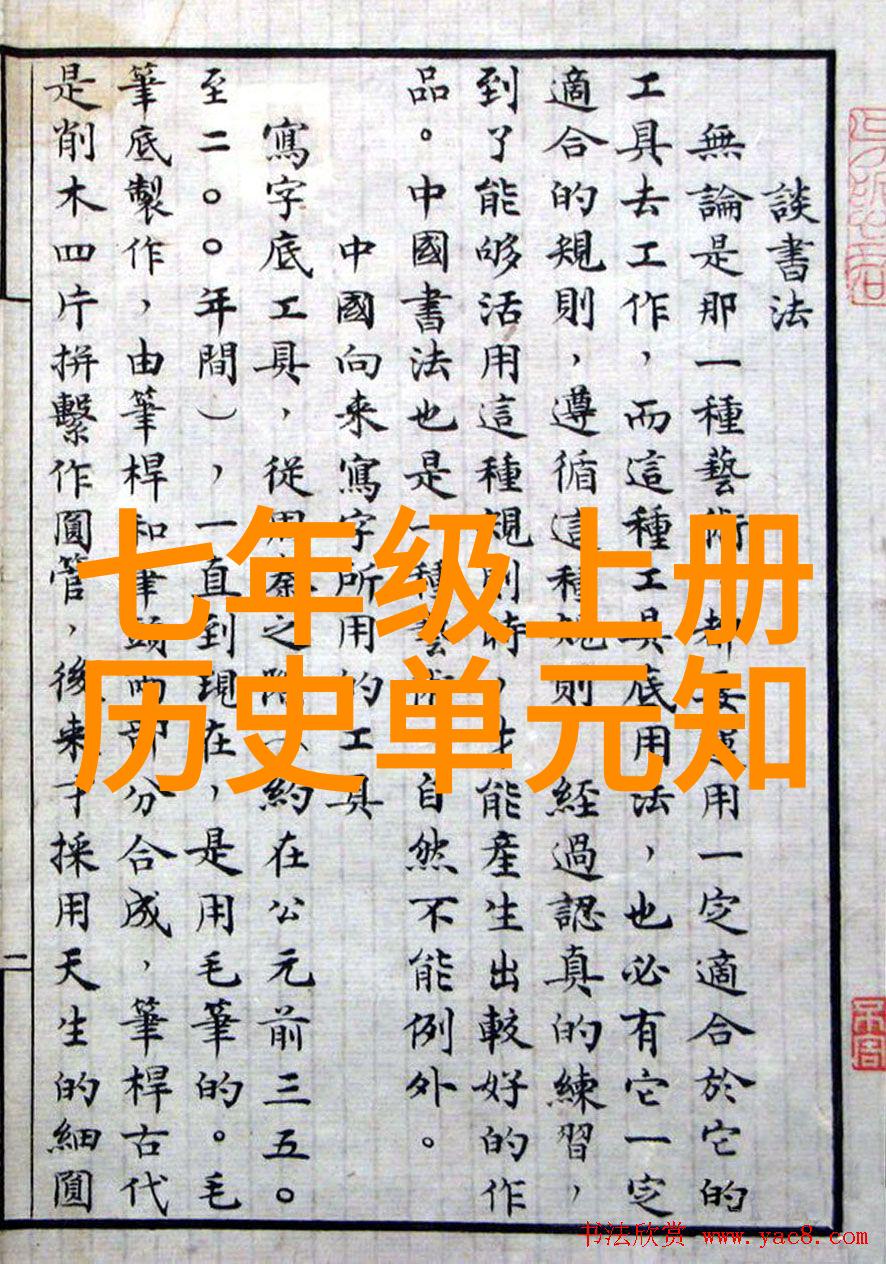 談書法
無論是那一種藝術，都要運用一定適合於它的
工具去工作，而這種工具底用法，也必有它一定
適合的規則，遵循這種規則，經過認真的練習，
到了能够活用這種規則時，才能產生出較好的作
品。中國書法也是一種藝術，自然不能例外。
中國向来寫字所用的工具
寫字底工具，從周秦之際（約在公元前三五〇
至二〇〇年間），一直到現在，是用毛筆的。毛
筆底製作，由筆桿和筆頭兩部分合成，筆桿古代
是削木四片拼繫作圓管，後来才採用天生的細圓
二
七年级上册
历史单元知
书法欣赏 www.yac8.com